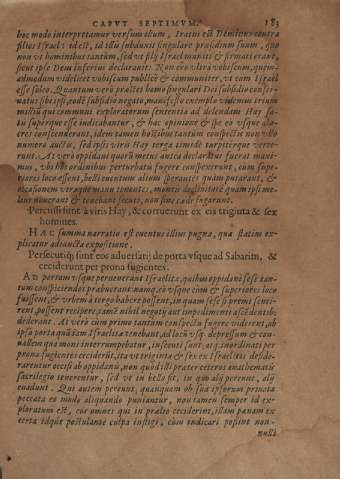 CAPVT SEPTIMVM. 183
hoc modo interpretamur versum istum, Iratus est Dominus contra
filios Israel: id est, ad illis subduxit singulare præsidium suum, quo
non vt hominibus tantum, sed vt filij Israel muniti & firmati erant,
sicut ipse Deus inferius declarant: Non ero vltra vobiscum, quem-
admodum videlicet vobiscum publicè & communiter, vt cum Israel
esse soleo. Quantum verò præstet homo singulari Dei subsidio confir-
matus sibi ipsi, eodē subsidio negato, manifesto exemplo videmus trium
millium qui communi exploratorum sententia ad delendam Hay sa-
tis superque esse iudicabantur, & hac opinione & spe eo vsque ala-
cres conscenderant, idem tamen hostium tantum conspectu non vllo
numero aucto, sed ipsis viris Hay terga timidè turpiterque verte-
runt. At verò oppidani quorū metus antea declaratus fuerat maxi-
mus, vbi hos ordinibus perturbatis fugere conspexerunt, cum supe-
riores loco essent, belli euentum alium sperantes quàm putarant, &
occasionem vtranque manu tenentes, montis decliuitate quam ipsi me-
lius nouerant & tenebant secuti, non sine cæde fugarunt.
Percussi sunt à viris Hay, & corruerunt ex eis triginta & sex
homines.
HAEC summa narratio est euentus illius pugnæ, quæ statim ex-
plicatur adiuncta expositione.
Persecutiq́; sunt eos aduersarij de porta vsque ad Sabarim, &
ceciderunt per prona fugientes.
AD portam vsque peruenerant Israelitæ, quibus oppidani sese tan-
tum conspiciendos præbuerant: namq; eo vsque cùm & superiores loco
fuissent, & vrbem à tergo habere possent, in quam sese si premi senti-
rent, possent recipere, tamē nihil negotij aut impedimenti ascendentib.
dederant. At verò cum primo tantum conspectu fugere viderent, ab
ipsa porta quā iam Israelitæ tenebant, ad locū vsq; depressum & con-
uallem qua mons interrumpebatur, insecuti sunt, atq; inordinati per
prona fugientes ceciderūt, ita vt triginta & sex ex Israelitis deside-
rarentur occisi ab oppidanis, non quòd illi præter ceteros anathematis
sacrilegio tenerentur, sed vt in bello fit, in quo alij pereunt, alij
euadunt. Qui autem pereunt, quanquam ob sua ipsorum priuata
peccata eo modo aliquando puniantur, non tamen semper id ex-
ploratum est, eos omnes qui in prælio ceciderint, illam pœnam ex
certa idque postulante culpa instigi, cum iudicari possint non-
nulli